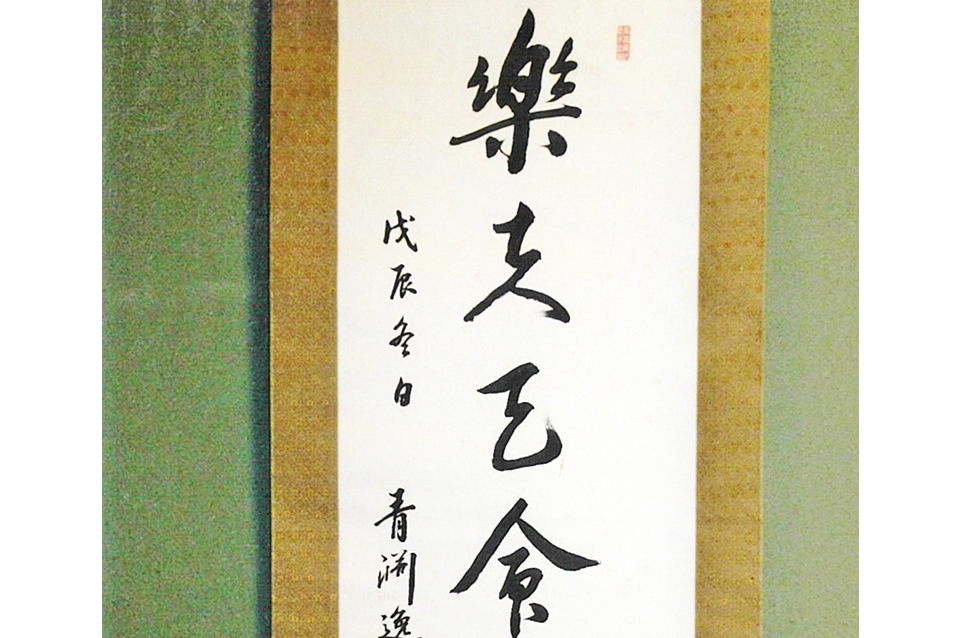 樂夫天命
戊辰冬日 青淵逸